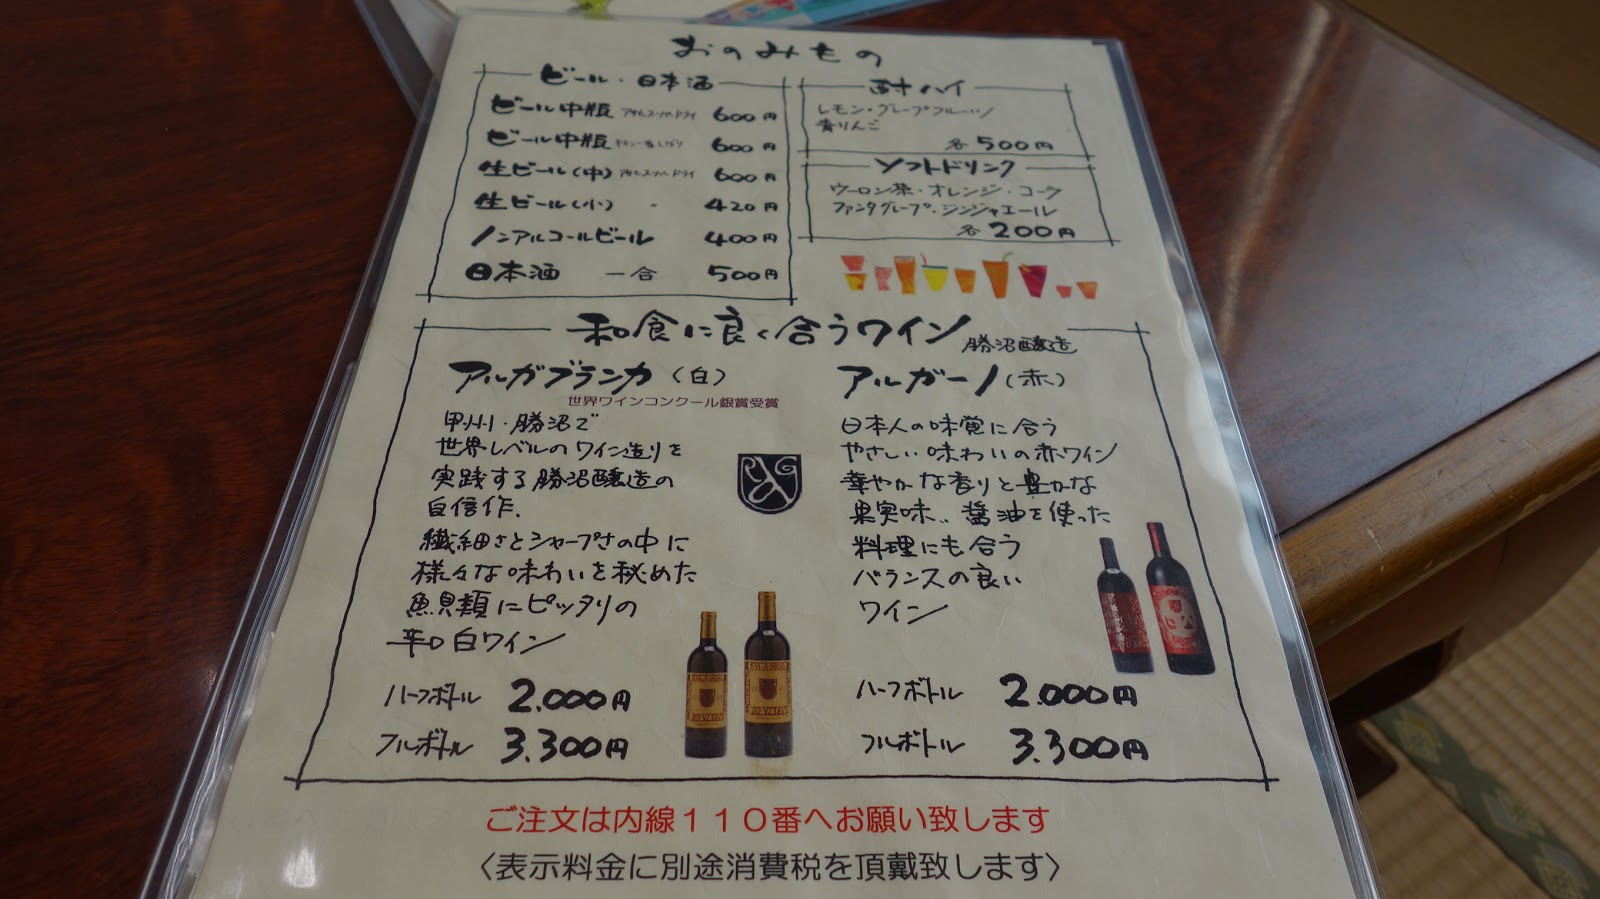 おのみもの
ビール・日本酒
ビール中瓶 アサヒスーパードライ 600円
ビール中瓶 キリン一番しぼり 600円
生ビール(中) アサヒスーパードライ 600円
生ビール(小) 420円
ノンアルコールビール 400円
日本酒 一合 500円
酎ハイ
レモン・グレープフルーツ/
青りんご
各500円
ソフトドリンク
ウーロン茶・オレンジ・コーク
ファンタグレープ・ジンジャエール
各200円
和食に良く合うワイン 勝沼醸造
アルガブランカ(白)
世界ワインコンクール銀賞受賞
甲州・勝沼で
世界レベルのワイン造りを
実践する勝沼醸造の
自信作.
繊細さとシャープさの中に
様々な味わいを秘めた
魚貝類にピッタリの
辛口白ワイン
ハーフボトル 2.000円
フルボトル 3.300円
アルガーノ(赤)
日本人の味覚に合う
やさしい味わいの赤ワイン
華やかな香りと豊かな
果実味.. 醤油を使った
料理にも合う
バランスの良い
ワイン
ハーフボトル 2.000円
フルボトル 3.300円
ご注文は内線１１０番へお願い致します
〈表示料金に別途消費税を頂戴致します〉